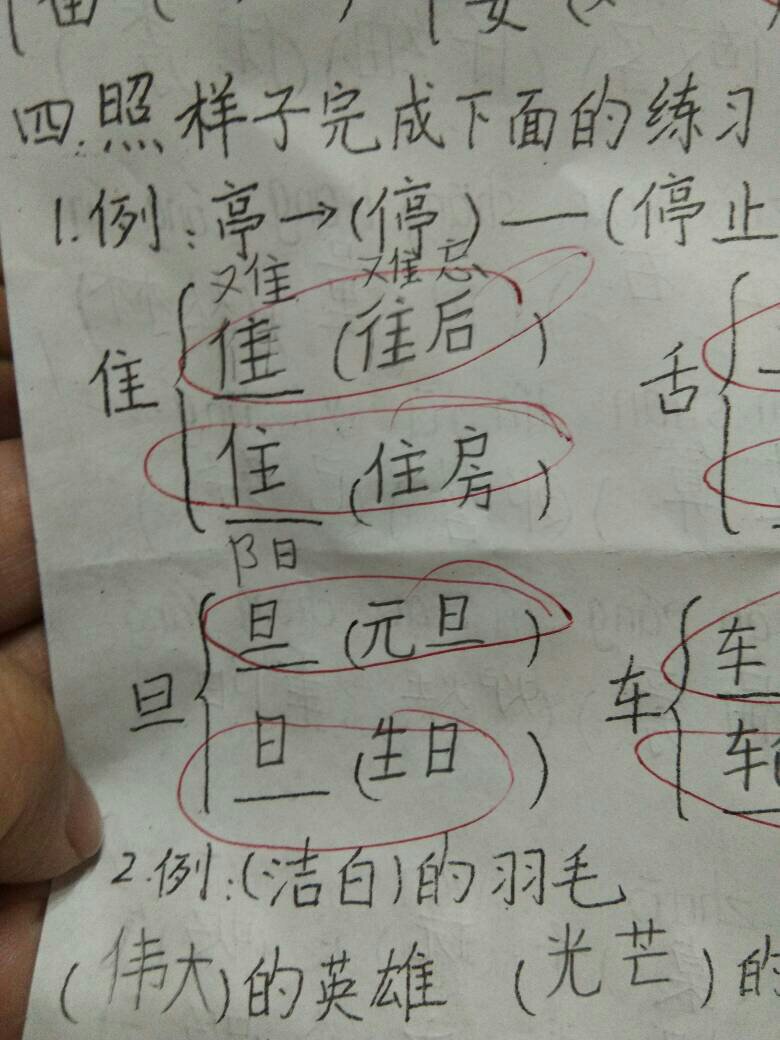 四.照样子完成下面的练习
1.例:亭→(停)—(停止
难 难忘
隹 隹 (往后)
住 (住房)
舌
阳
旦 旦 (元旦)
日 (生日)
车 车
车
2.例:(洁白)的羽毛
(伟大)的英雄 (光芒)的